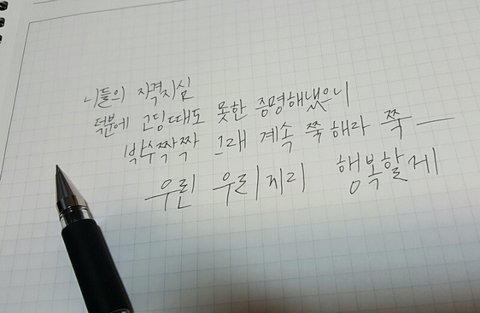 니들의 자격지심
덕분에 고딩때도 못한 증명해냈으니
박수짝짝 그래 계속 쭉 해라 쭉 —
우린 우리끼리 행복할게